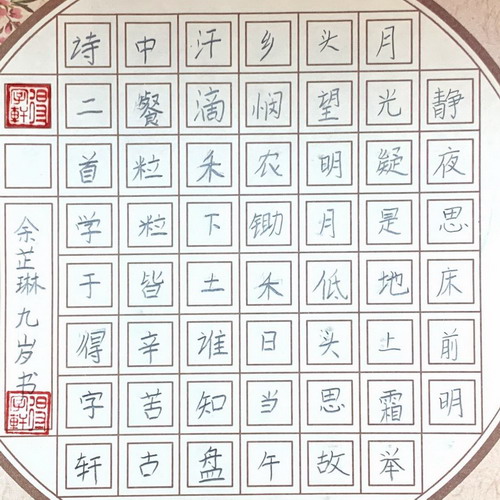 静夜思床前明
月光疑是地上霜举
头望明月低头思故
乡悯农锄禾日当午
汗滴禾下土谁知盘
中餐粒粒皆辛苦古
诗二首学于得字轩
得字軒
余芷琳九岁书
得字軒